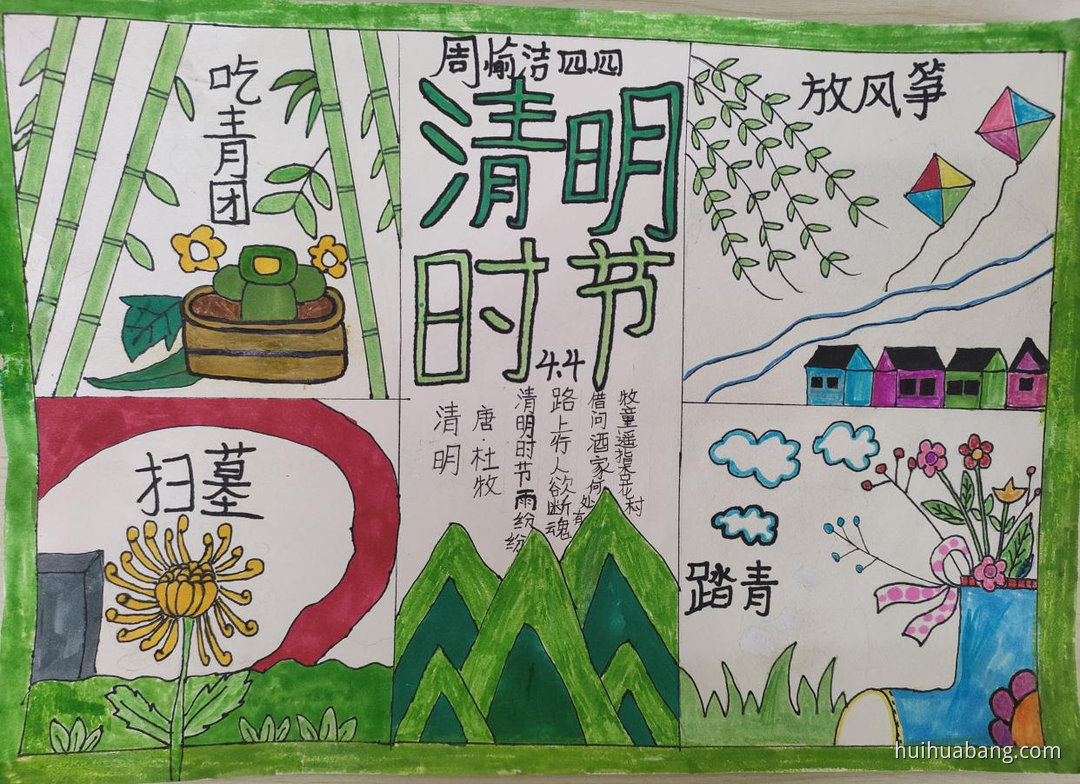 周愉洁四.四
清明
时节
4.4
吃青团
放风筝
清明
唐·杜牧
清明时节雨纷纷
路上行人欲断魂
借问酒家何处有
牧童遥指杏花村
扫墓
踏青
huihuabang.com